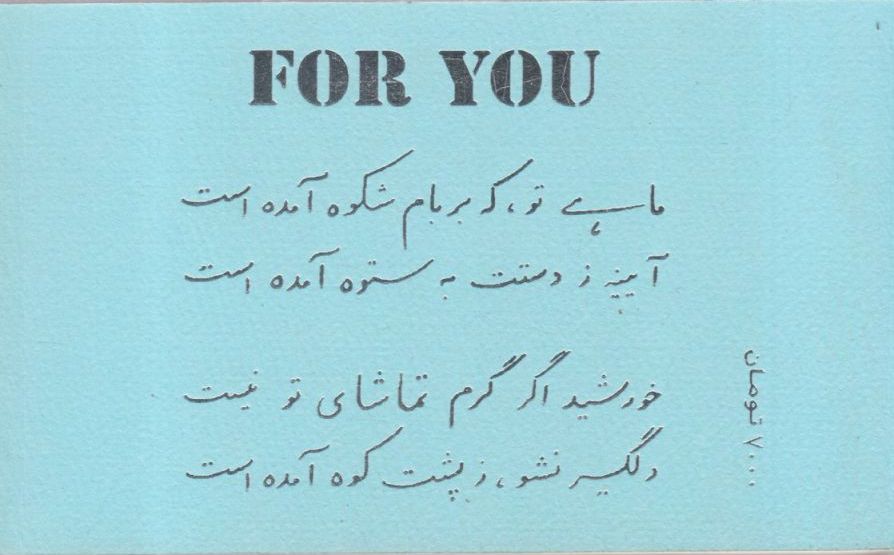 FOR YOU
ماهے تو، که بر بام شکوه آمده است
آیینه ز دستت به ستوه آمده است
خورشید اگر گرم تماشای تو نیست
دلگیر نشو، ز پشت کوه آمده است
۷۰۰۰ تومان